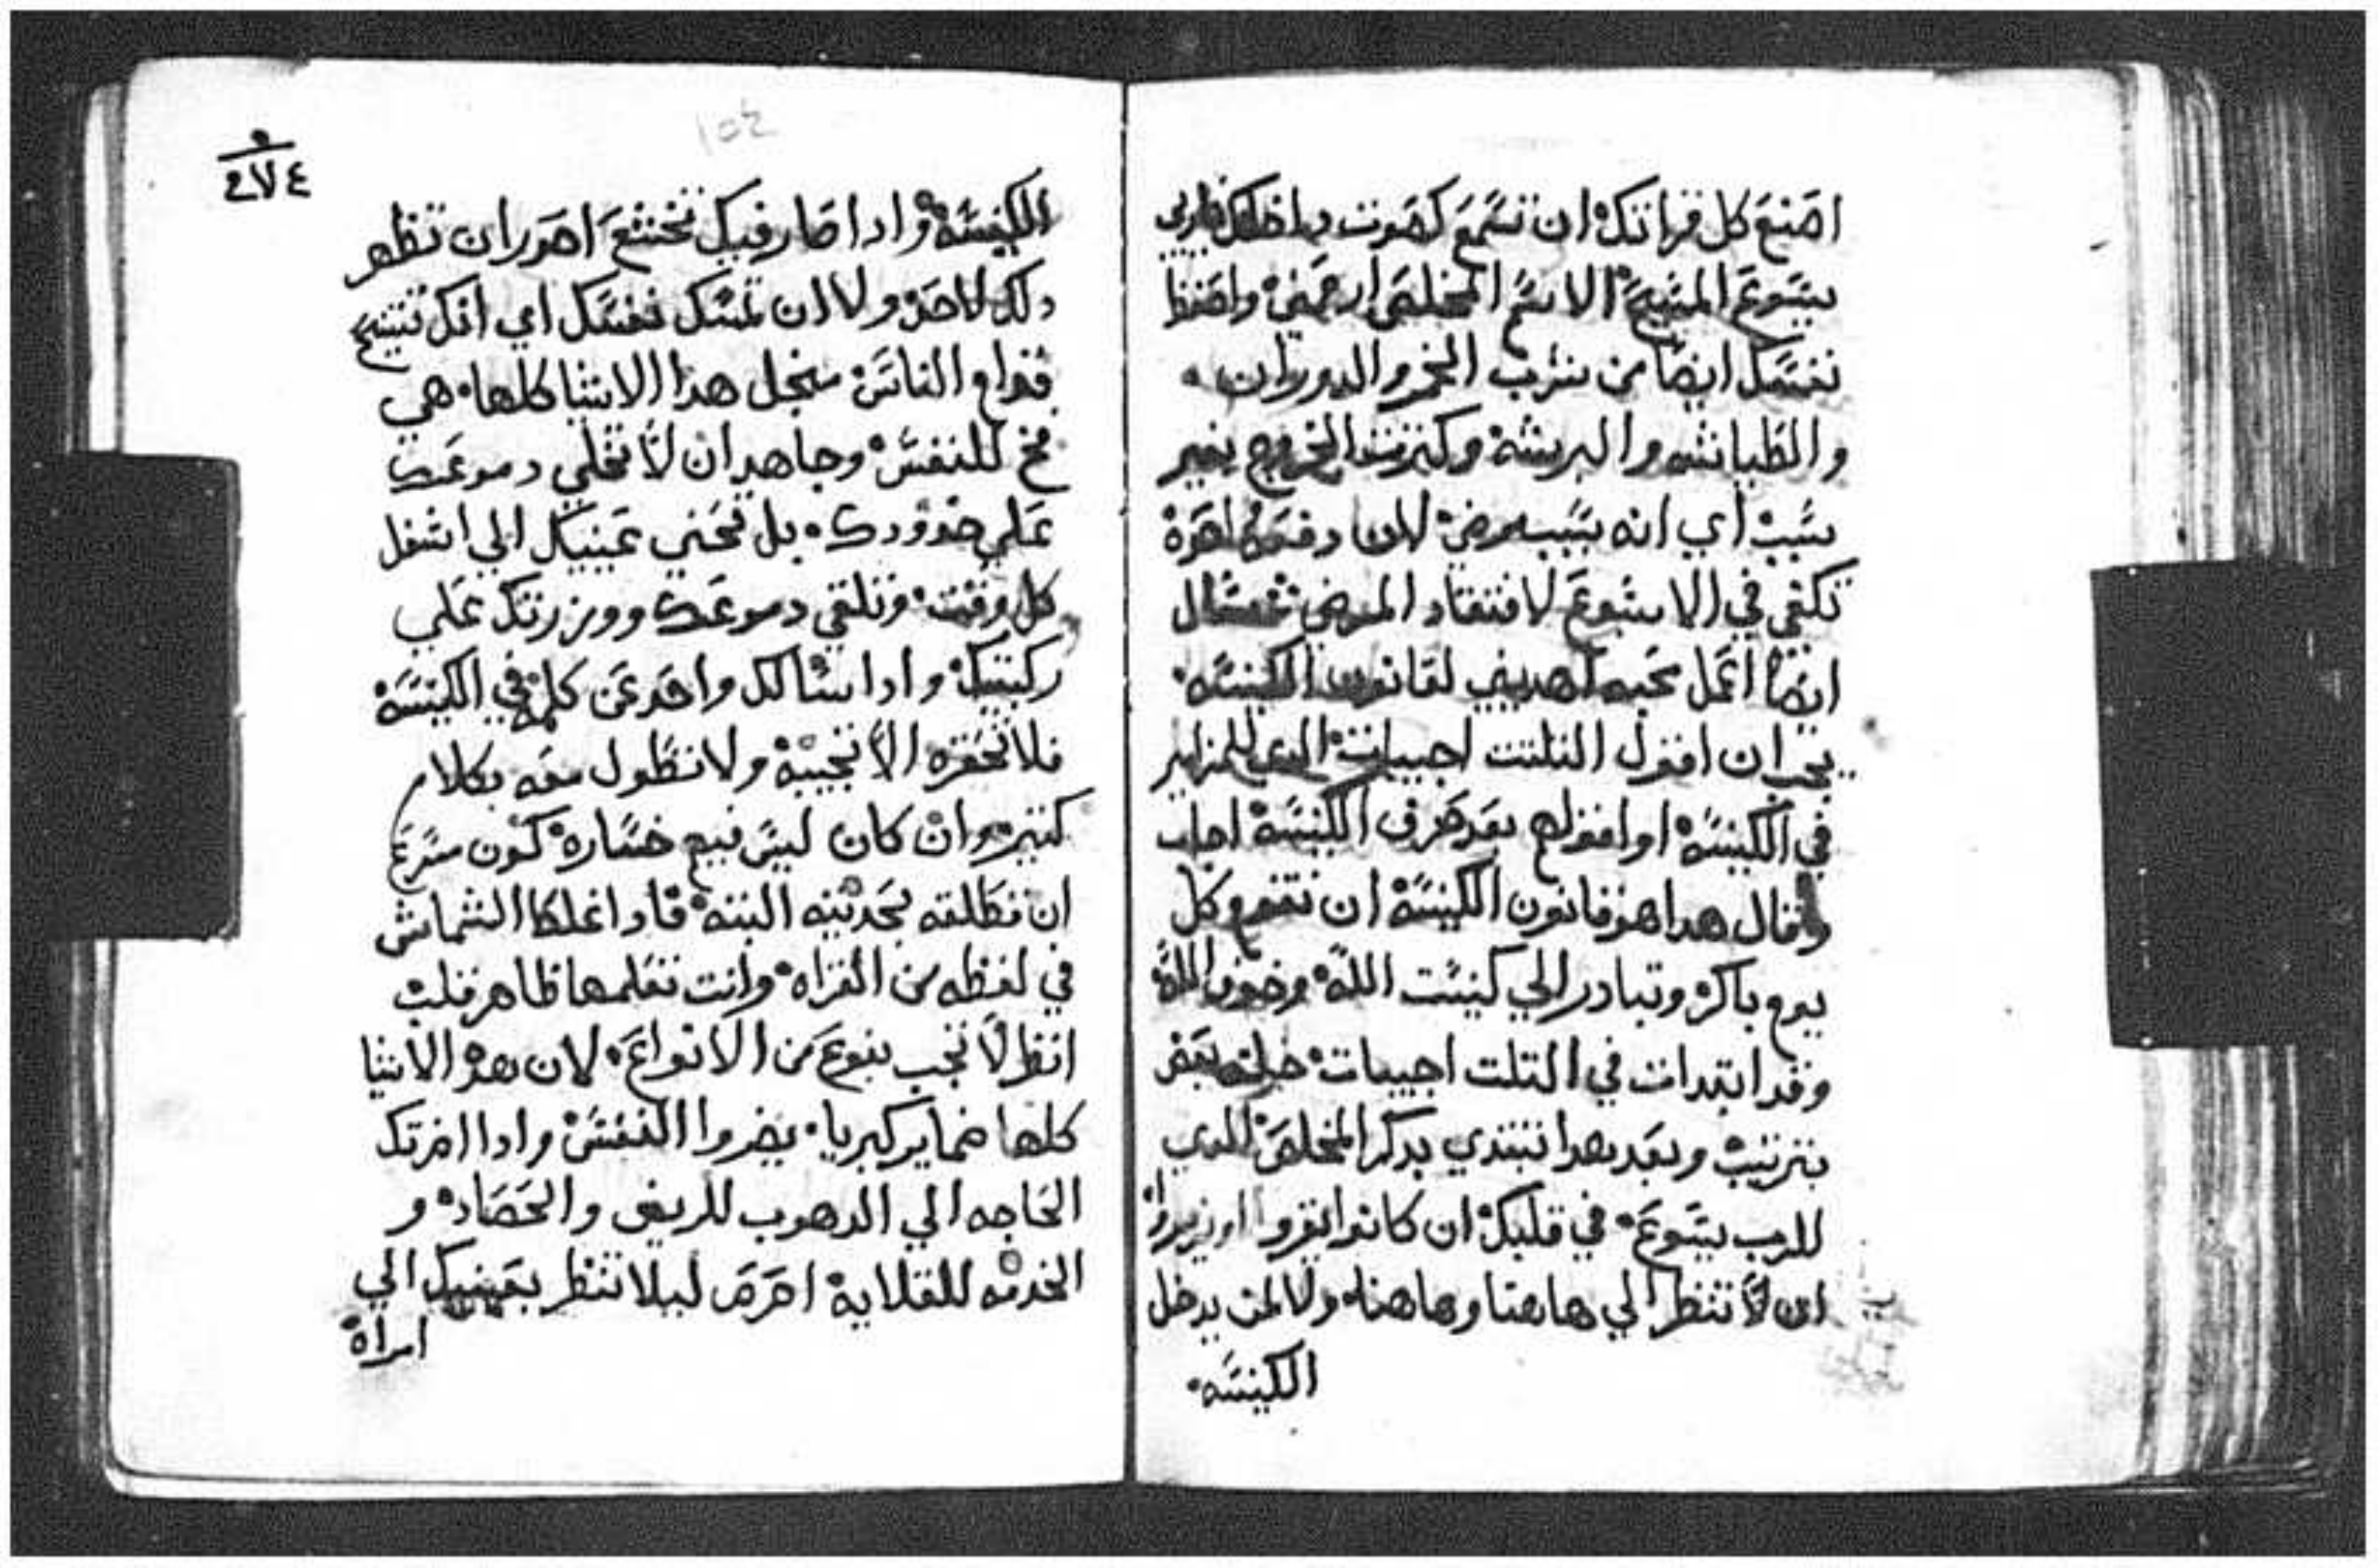 اصنع كل قراتك ان تسمع كصوت داخلك ياربي
يسوع المسيح الاسم المخلصي ارحمني واحفظ
نفسك ايضا من شرب الخمر والدوران
والطياشه والبريشه وكترت الخروج بغير
سبب اي انه بسبب مرض لان دفعه واحدة
تكفي في الاسبوع لافتقاد المرضي تم سال
ايضا اعمل محبه اهديني لقانون الكنيسه
يجب ان اقول التلتت اجبيات الدي للمزامير
في الكنيسة او اقولهم بعد صرف الكنيسة اجاب
وقال هدا هو قانون الكنيسة ان تقوم كل
يوم باكر وتبادر الي كنيست الله وخوف الله
وقد ابتدات في التلت اجبيات خلف بعض
بترتيب وبعد هدا تبتدي بدكر المخلص الدي
للرب يسوع في قلبك ان كانوا يقروا او يزمروا
ان لا تنظر الي هاهنا وهاهناه ولا لمن يدخل
الكنيسه
١٥٤
٢٧٤
الكنيسة وادا صار فيك تخشع احدر ان تظهر
دلك لاحد ولا ان تمسك نفسك اي انك تتيح
قدام الناس منجل هدا الاشيا كلها هي
فخ للنفس وجاهد ان لا تخلي دموعك
علي خدودك بل تحني عينيك الي اسفل
كل وقت وتلقي دموعك ووزرتك علي
ركبتيك وادا سالك واحد عن كلمه في الكنيسة
فلا تحقره الا تجيبه ولا تطول معه بكلام
كتير وان كان ليس فيهم خساره كون سرع
ان تطلقه بحديثه البته فادا غلط الشماس
في لفظه من القراه وانت تعلمها ظاهر قلب
انظر لا تجب بنوع من الانواع لان هدا الاشيا
كلها ضماير كبريا يضروا النفس وادا اخرتك
الحاجه الي الدهوب للريف والحصاد و
الخدمه للقلاية احرص ليلا تنظر بعينيك الي
امراة